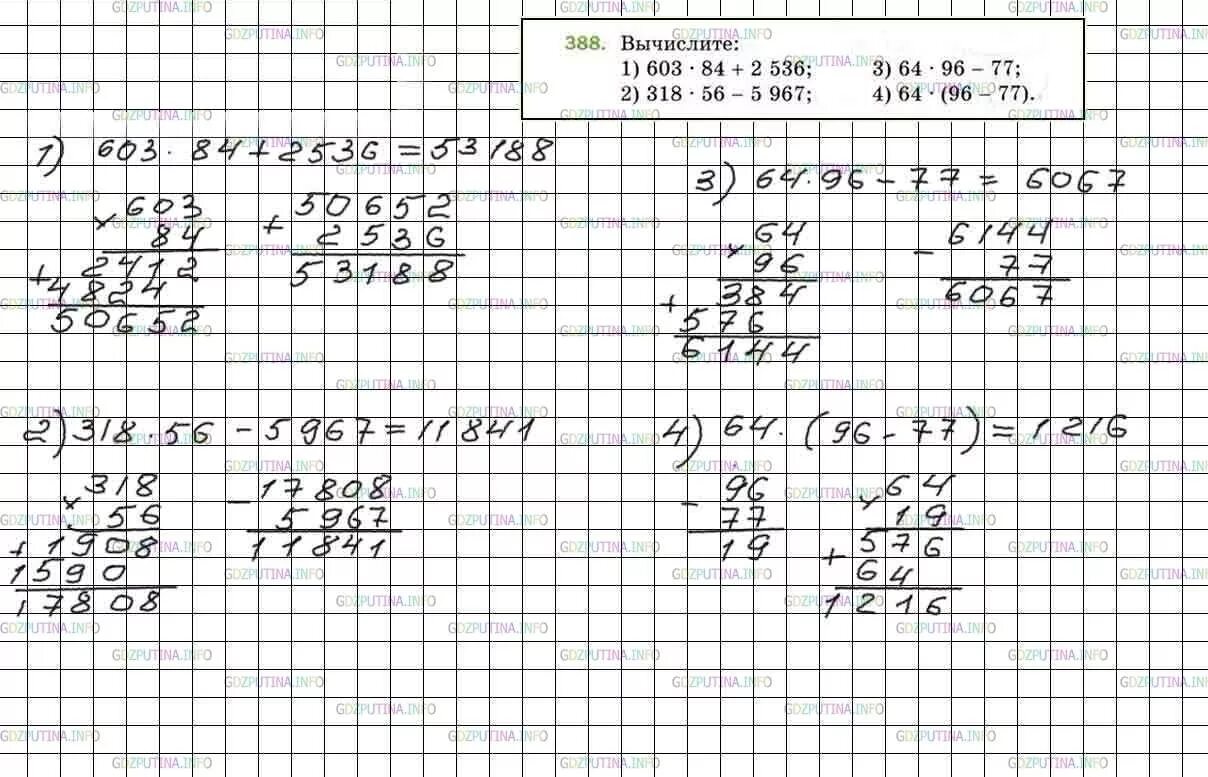 388. Вычислите:
1) 603 · 84 + 2 536; 3) 64 · 96 − 77;
2) 318 · 56 − 5 967; 4) 64 · (96 − 77).
1) 603 · 84 + 2536 = 53188
× 603
84
+ 2412
4824
50652
+ 50652
2536
53188
3) 64 · 96 − 77 = 6067
× 64
96
+ 384
576
6144
− 6144
77
6067
2) 318 · 56 − 5967 = 11841
× 318
56
+ 1908
1590
17808
− 17808
5967
11841
4) 64 · (96 − 77) = 1216
− 96
77
19
× 64
19
+ 576
64
1216
GDZPUTINA.INFO